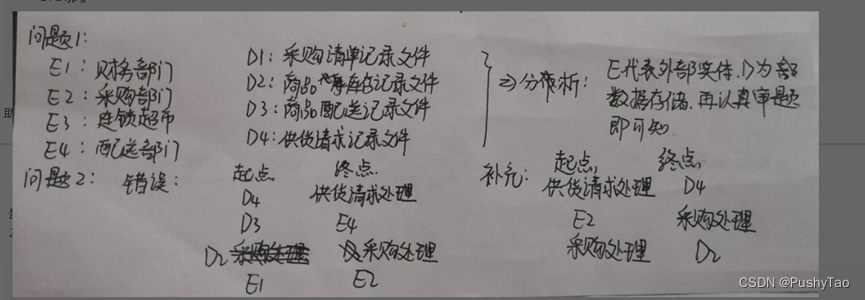 问题1:
E1: 财务部门
E2: 采购部门
E3: 连锁超市
E4: 配送部门
D1: 采购清单记录文件
D2: 商品库存记录文件
D3: 商品配送记录文件
D4: 供货请求记录文件
分析: E代表外部实体, D为
数据存储, 再认真审题
即可知.
问题2: 错误:
起点 终点
D4 供货请求处理
D3 E4
D2 采购处理
E1 E2
补充: 起点 终点
供货请求处理 D4
E2 采购处理
采购处理 D2
CSDN @PushyTao